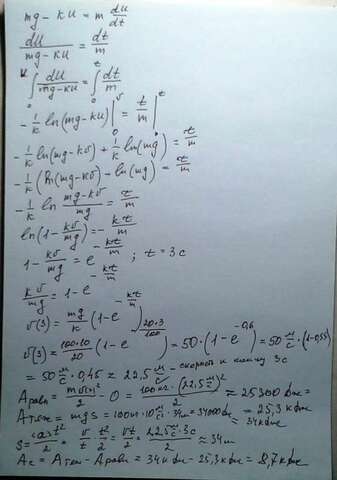 mg - ku = m du/dt
du/(mg - ku) = dt/m
∫₀^v du/(mg - ku) = ∫₀^t dt/m
-1/k ln(mg - ku)|₀^v = t/m|₀^t
-1/k ln(mg - kv) + 1/k ln(mg) = t/m
-1/k (ln(mg - kv) - ln(mg)) = t/m
-1/k ln (mg - kv)/mg = t/m
ln(1 - kv/mg) = -kt/m
1 - kv/mg = e^(-kt/m) ; t = 3с
kv/mg = 1 - e^(-kt/m)
v(3) = mg/k (1 - e^(-kt/m))
v(3) = 100·10/20 (1 - e^(-20·3/100)) = 50·(1 - e^(-0,6)) = 50 м/с·(1 - 0,55)
= 50 м/с · 0,45 = 22,5 м/с - скорость к концу 3с
Аравн = mv(3)²/2 - 0 = 100кг·(22,5 м/с)²/2 ≈ 25300 дж =
= 25,3 кдж
Атяж = mgs = 100кг·10 м/с²·34м = 34000дж = 34кдж
s = at²/2 = v/t · t²/2 = vt/2 = 22,5 м/с·3с/2 ≈ 34м
Ас = Атяж - Аравн = 34кдж - 25,3кдж = 8,7кдж